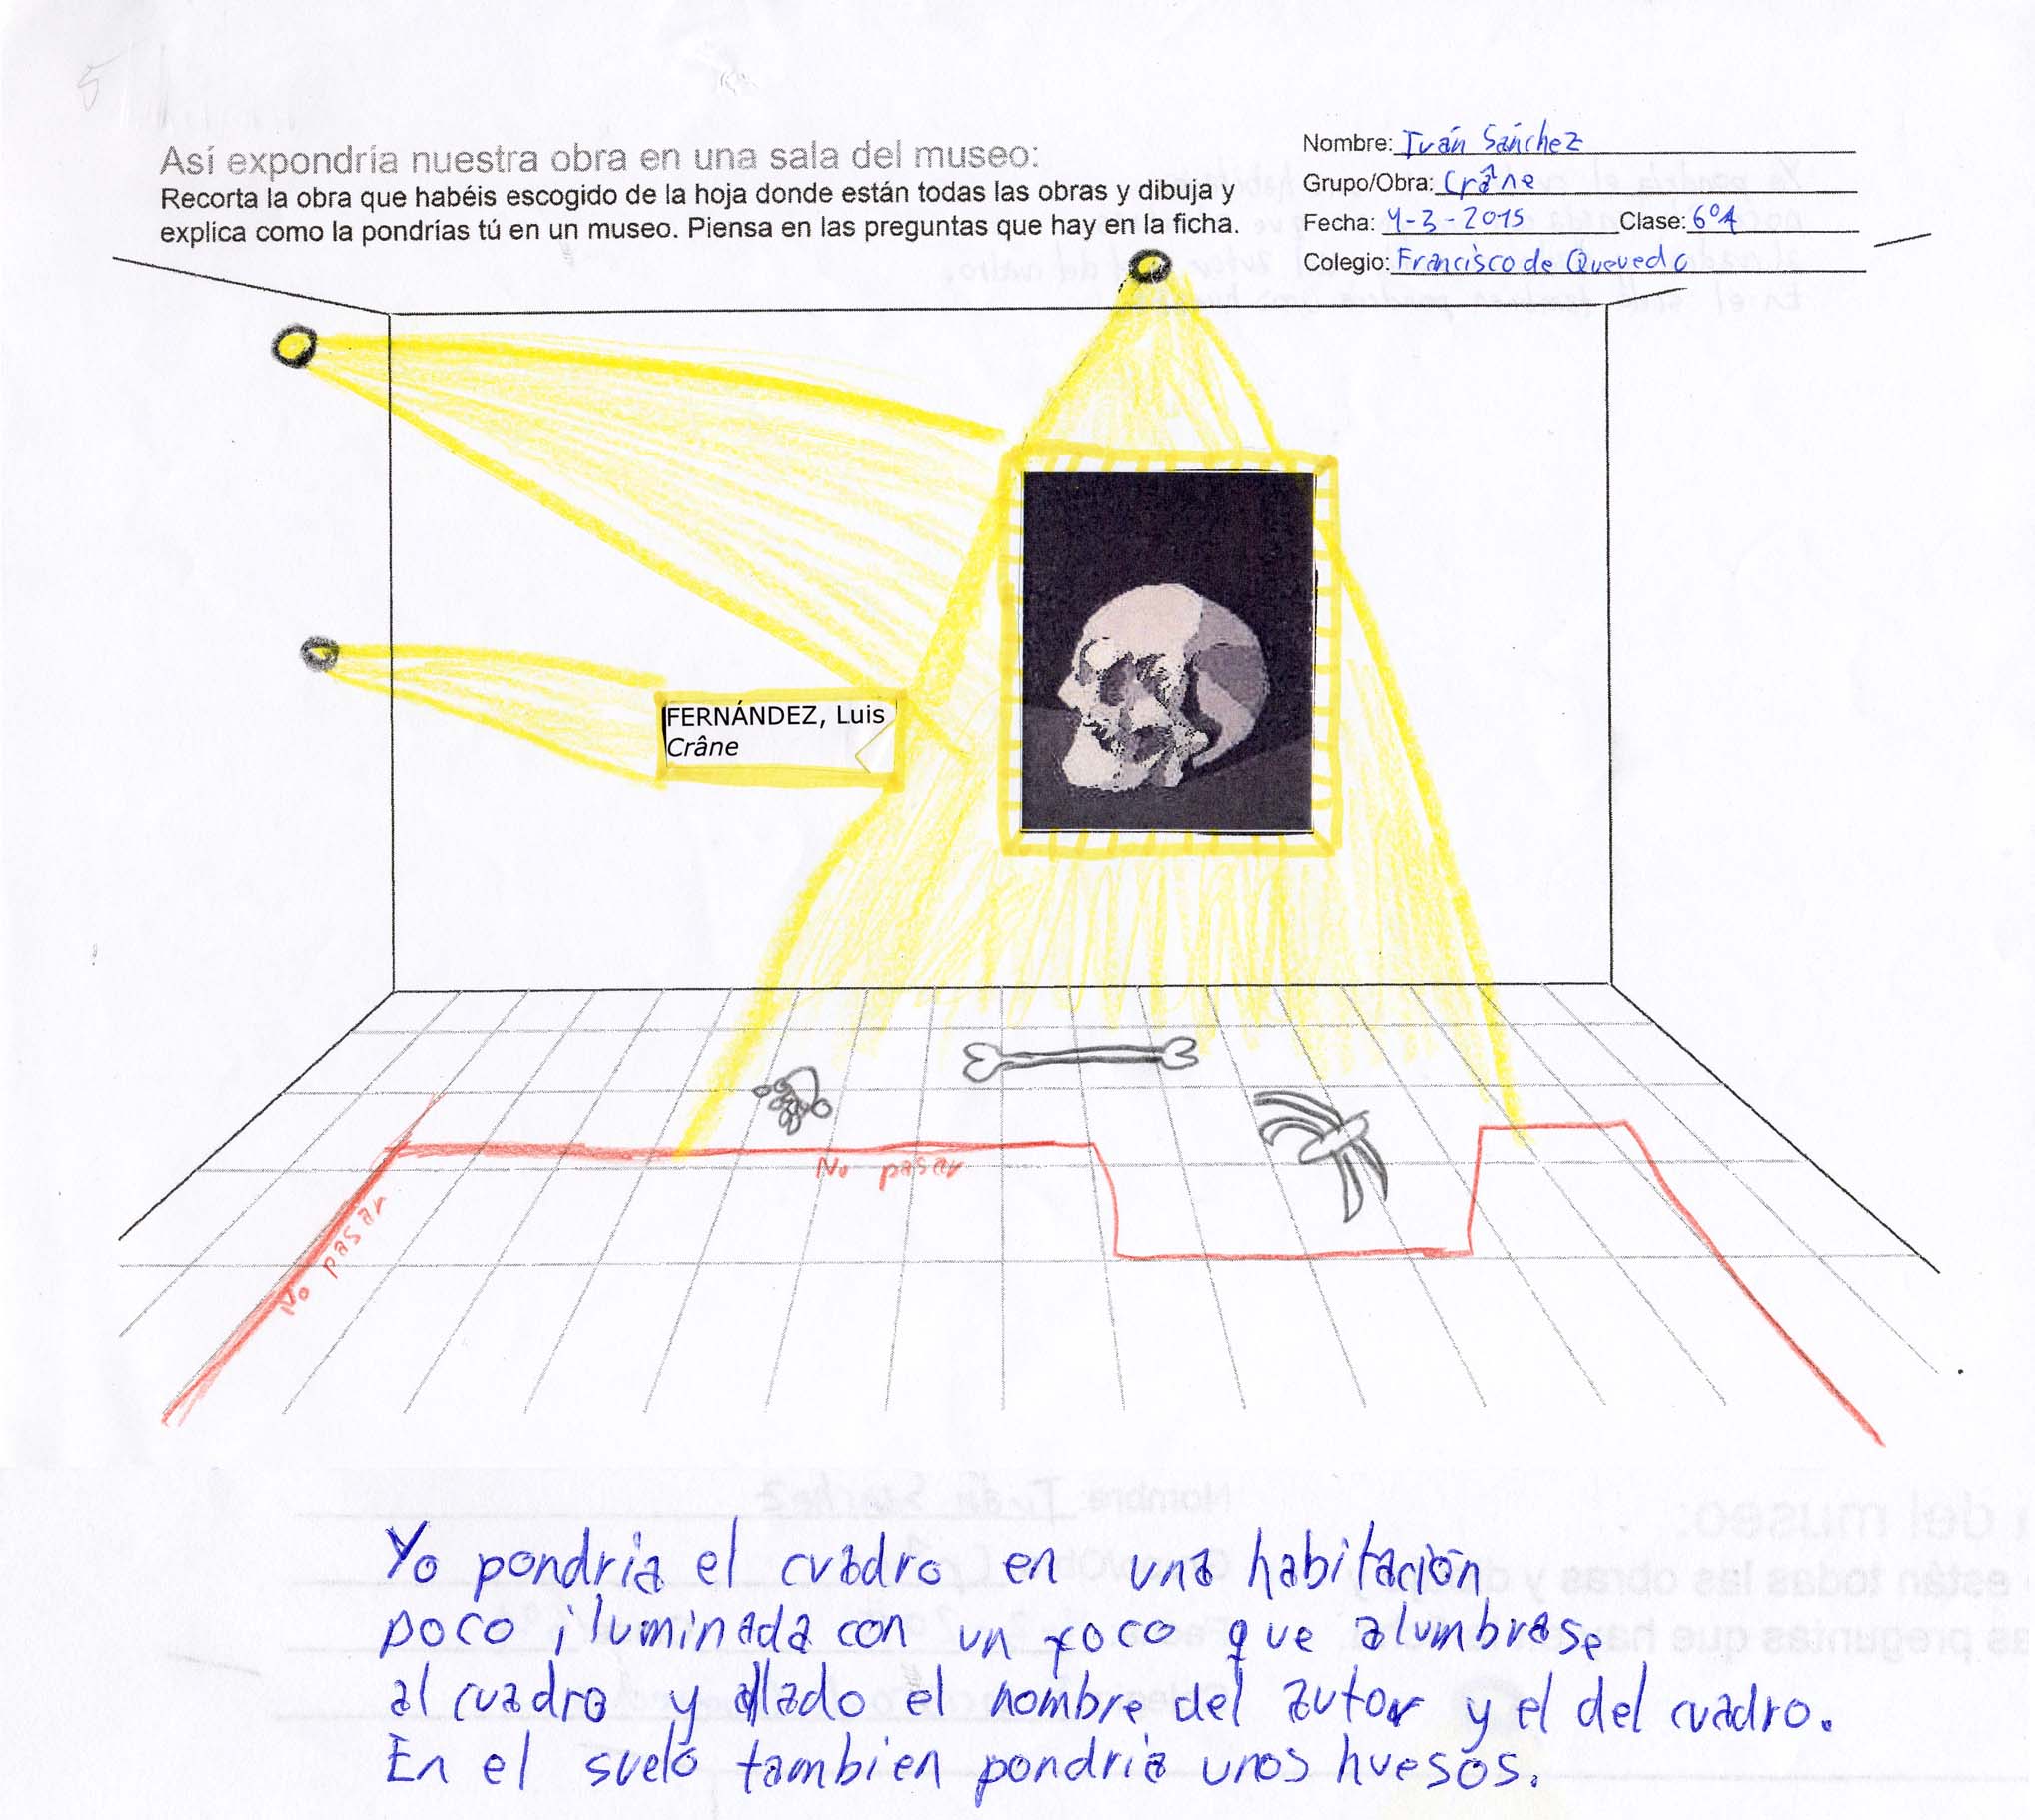 5
Así expondría nuestra obra en una sala del museo:
Recorta la obra que habéis escogido de la hoja donde están todas las obras y dibuja y
explica como la pondrías tú en un museo. Piensa en las preguntas que hay en la ficha.
Nombre: Iván Sánchez
Grupo/Obra: Crâne
Fecha: 4-3-2015 Clase: 6ºA
Colegio: Francisco de Quevedo
FERNÁNDEZ, Luis
Crâne
No pasar
No pasar
Yo pondria el cuadro en una habitación
poco iluminada con un foco que alumbrase
al cuadro y allado el nombre del autor y el del cuadro.
En el suelo tambien pondria unos huesos.